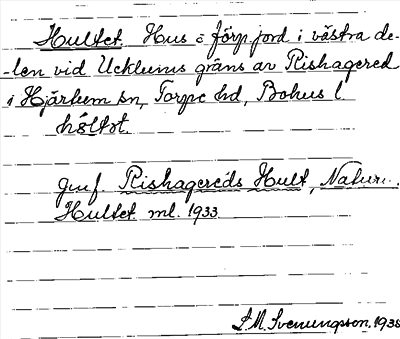 Hultet. Hus o förp.jord i västra de-
-len vid Ucklums gräns av Rishagered
i Hjärtum sn, Torpe hd, Bohus l.
hö́ltət.
Jmf. Rishagereds Hult, Naturn.
Hultet ml. 1933
S.M. Svenungsson, 1935